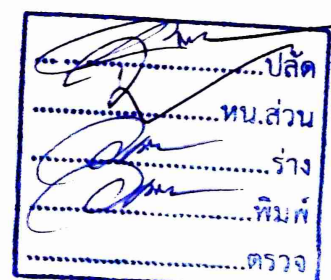 ....................ปลัด
....................หน.ส่วน
....................ร่าง
....................พิมพ์
....................ตรวจ